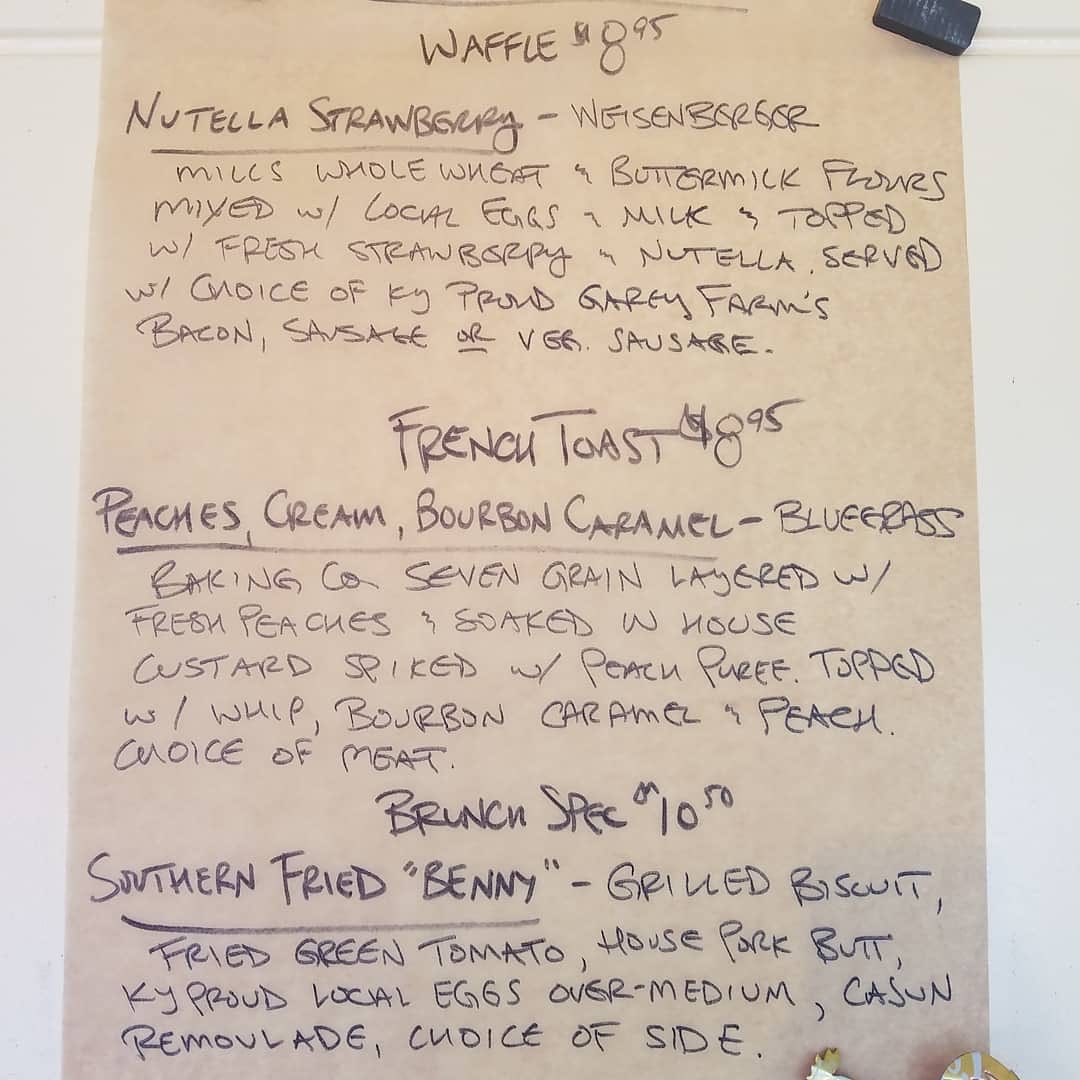 WAFFLE $8.95
NUTELLA STRAWBERRY - WEISENBERGER
MILLS WHOLE WHEAT & BUTTERMILK FLOURS
MIXED W/ LOCAL EGGS & MILK & TOPPED
W/ FRESH STRAWBERRY & NUTELLA. SERVED
W/ CHOICE OF KY PROUD GAREY FARM'S
BACON, SAUSAGE OR VEG. SAUSAGE.
FRENCH TOAST $8.95
PEACHES, CREAM, BOURBON CARAMEL - BLUEGRASS
BAKING CO SEVEN GRAIN LAYERED W/
FRESH PEACHES & SOAKED IN HOUSE
CUSTARD SPIKED W/ PEACH PUREE. TOPPED
W/ WHIP, BOURBON CARAMEL & PEACH.
CHOICE OF MEAT.
BRUNCH SPEC $10.50
SOUTHERN FRIED "BENNY" - GRILLED BISCUIT,
FRIED GREEN TOMATO, HOUSE PORK BUTT,
KY PROUD LOCAL EGGS OVER-MEDIUM, CAJUN
REMOULADE, CHOICE OF SIDE.